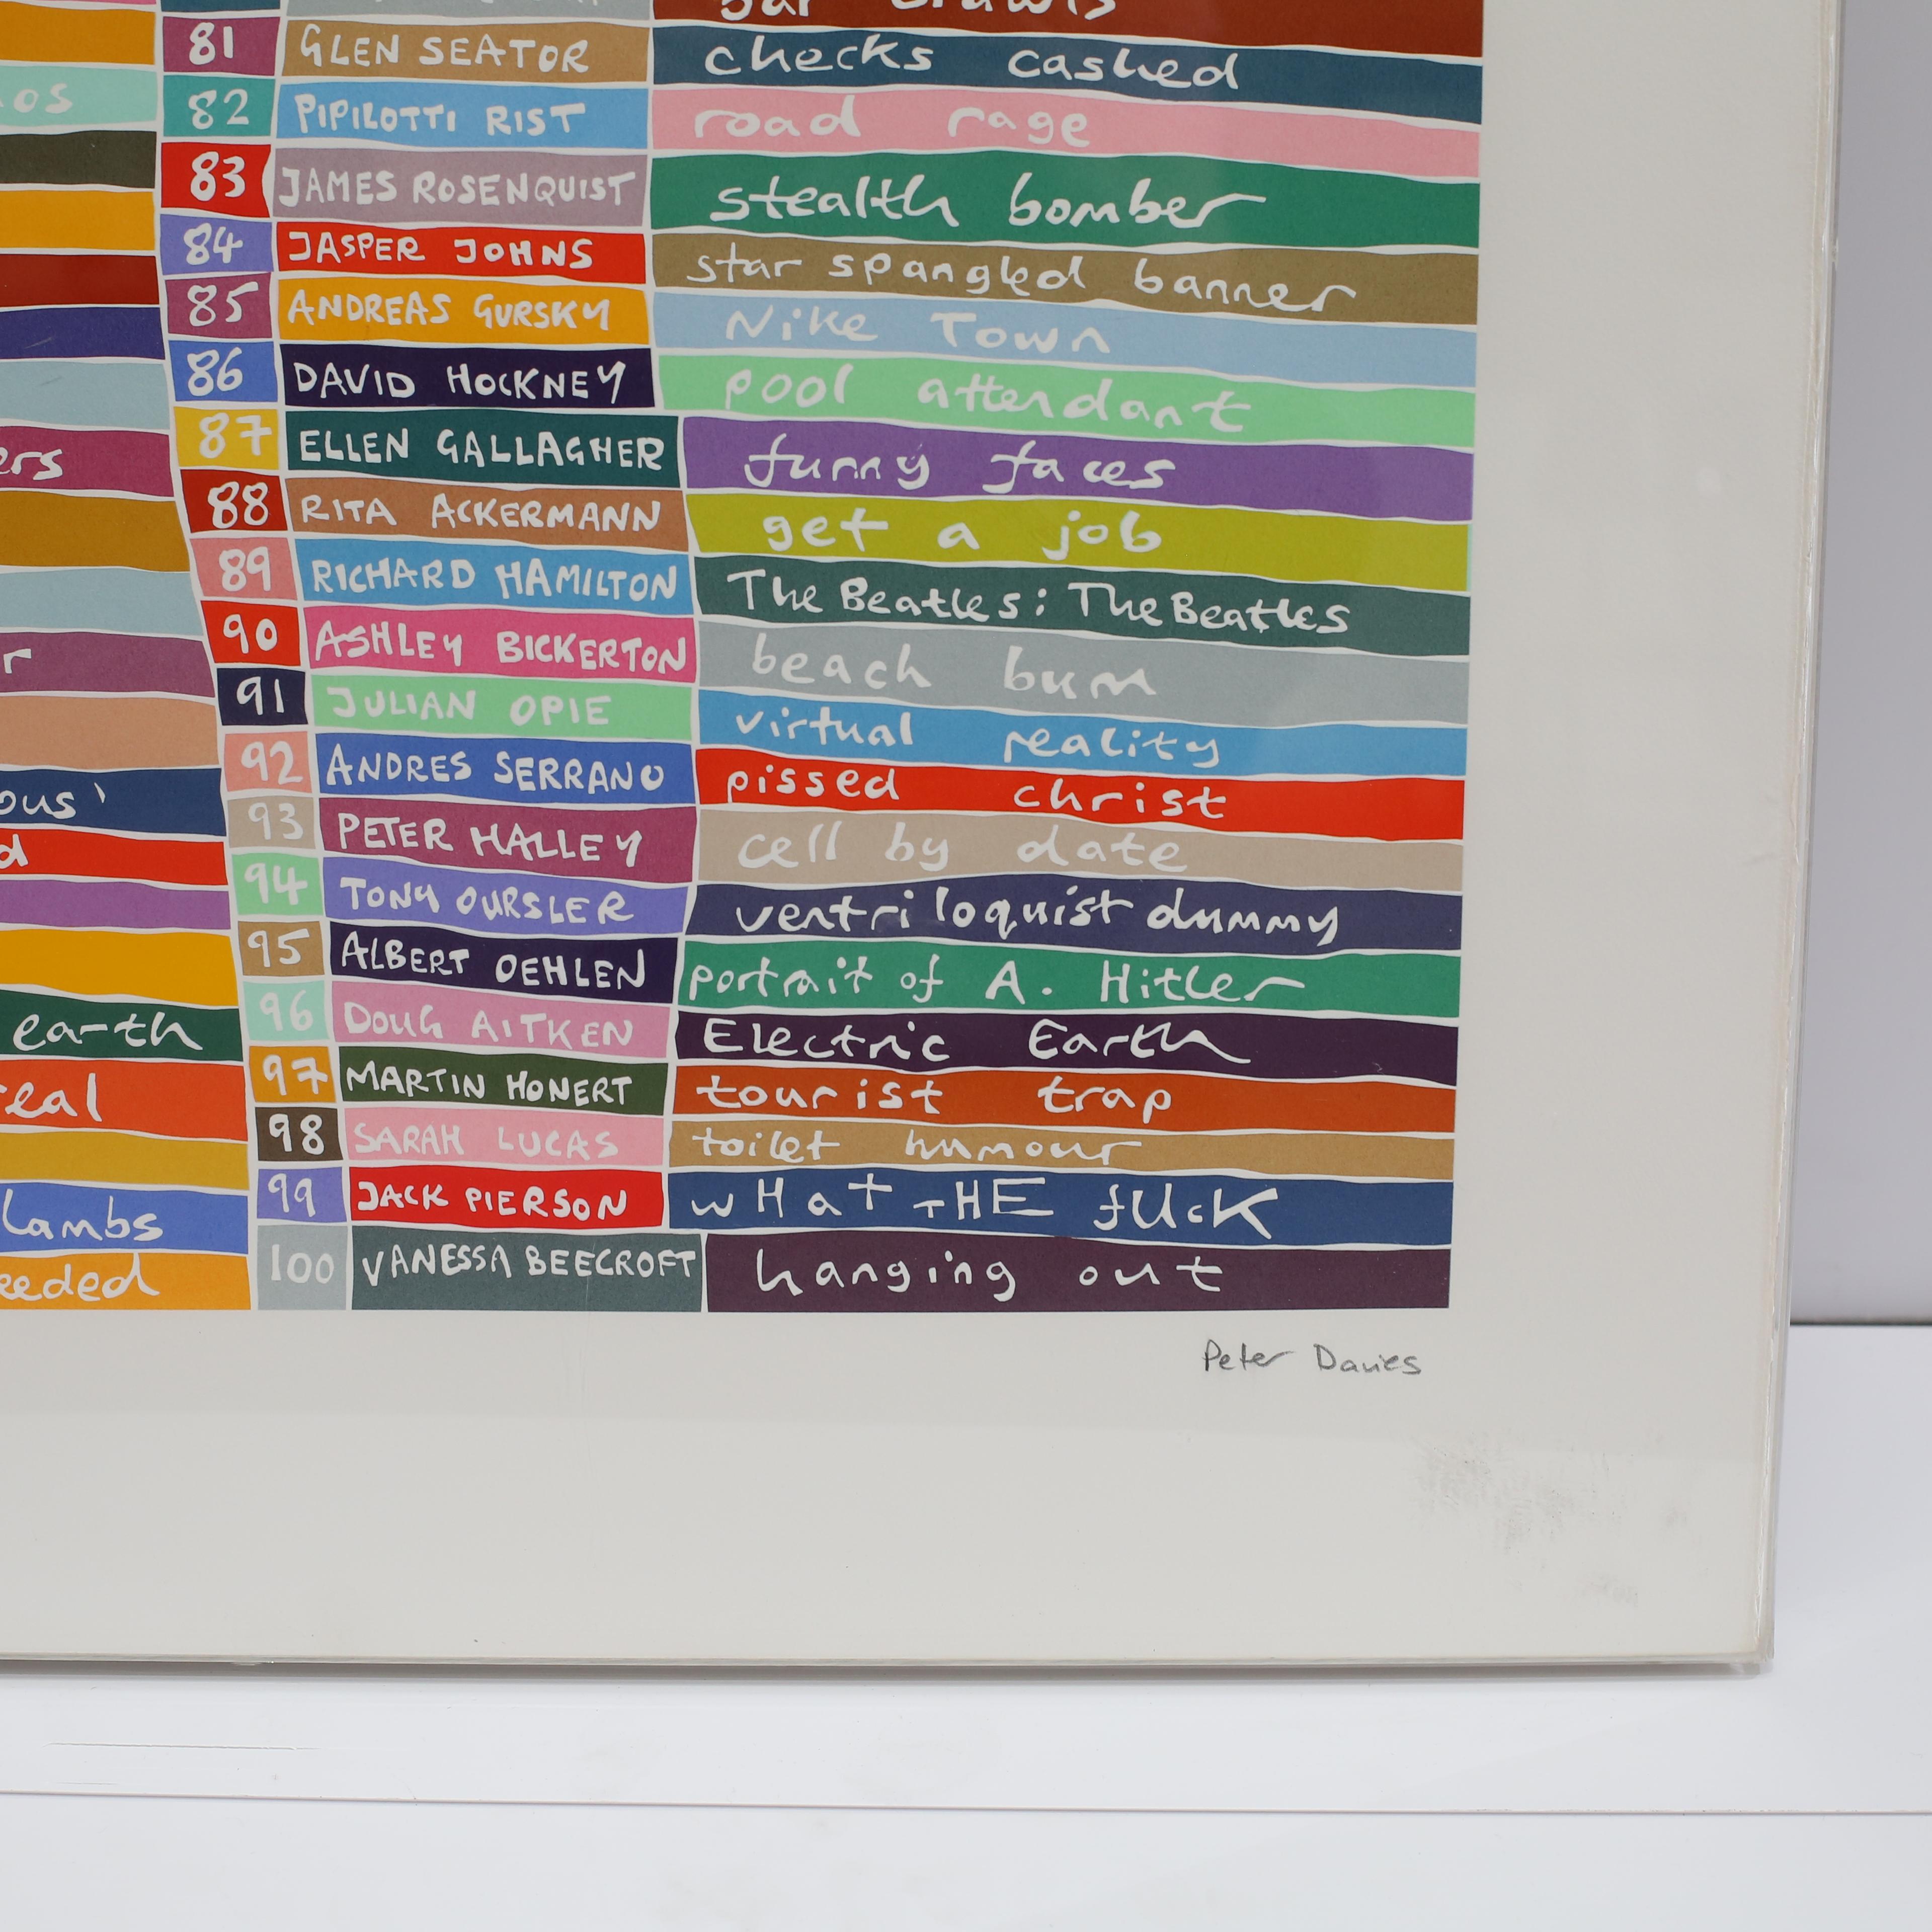 bar crawls
81 GLEN SEATOR checks cashed
82 PIPILOTTI RIST road rage
83 JAMES ROSENQUIST stealth bomber
84 JASPER JOHNS star spangled banner
85 ANDREAS GURSKY Nike Town
86 DAVID HOCKNEY pool attendant
87 ELLEN GALLAGHER funny faces
88 RITA ACKERMANN get a job
89 RICHARD HAMILTON The Beatles: The Beatles
90 ASHLEY BICKERTON beach bum
91 JULIAN OPIE virtual reality
92 ANDRES SERRANO pissed christ
93 PETER HALLEY cell by date
94 TONY OURSLER ventriloquist dummy
95 ALBERT OEHLEN portrait of A. Hitler
earth 96 DOUG AITKEN Electric Earth
97 MARTIN HONERT tourist trap
98 SARAH LUCAS toilet humour
lambs 99 JACK PIERSON WHAT THE fUcK
100 VANESSA BEECROFT hanging out
Peter Davies